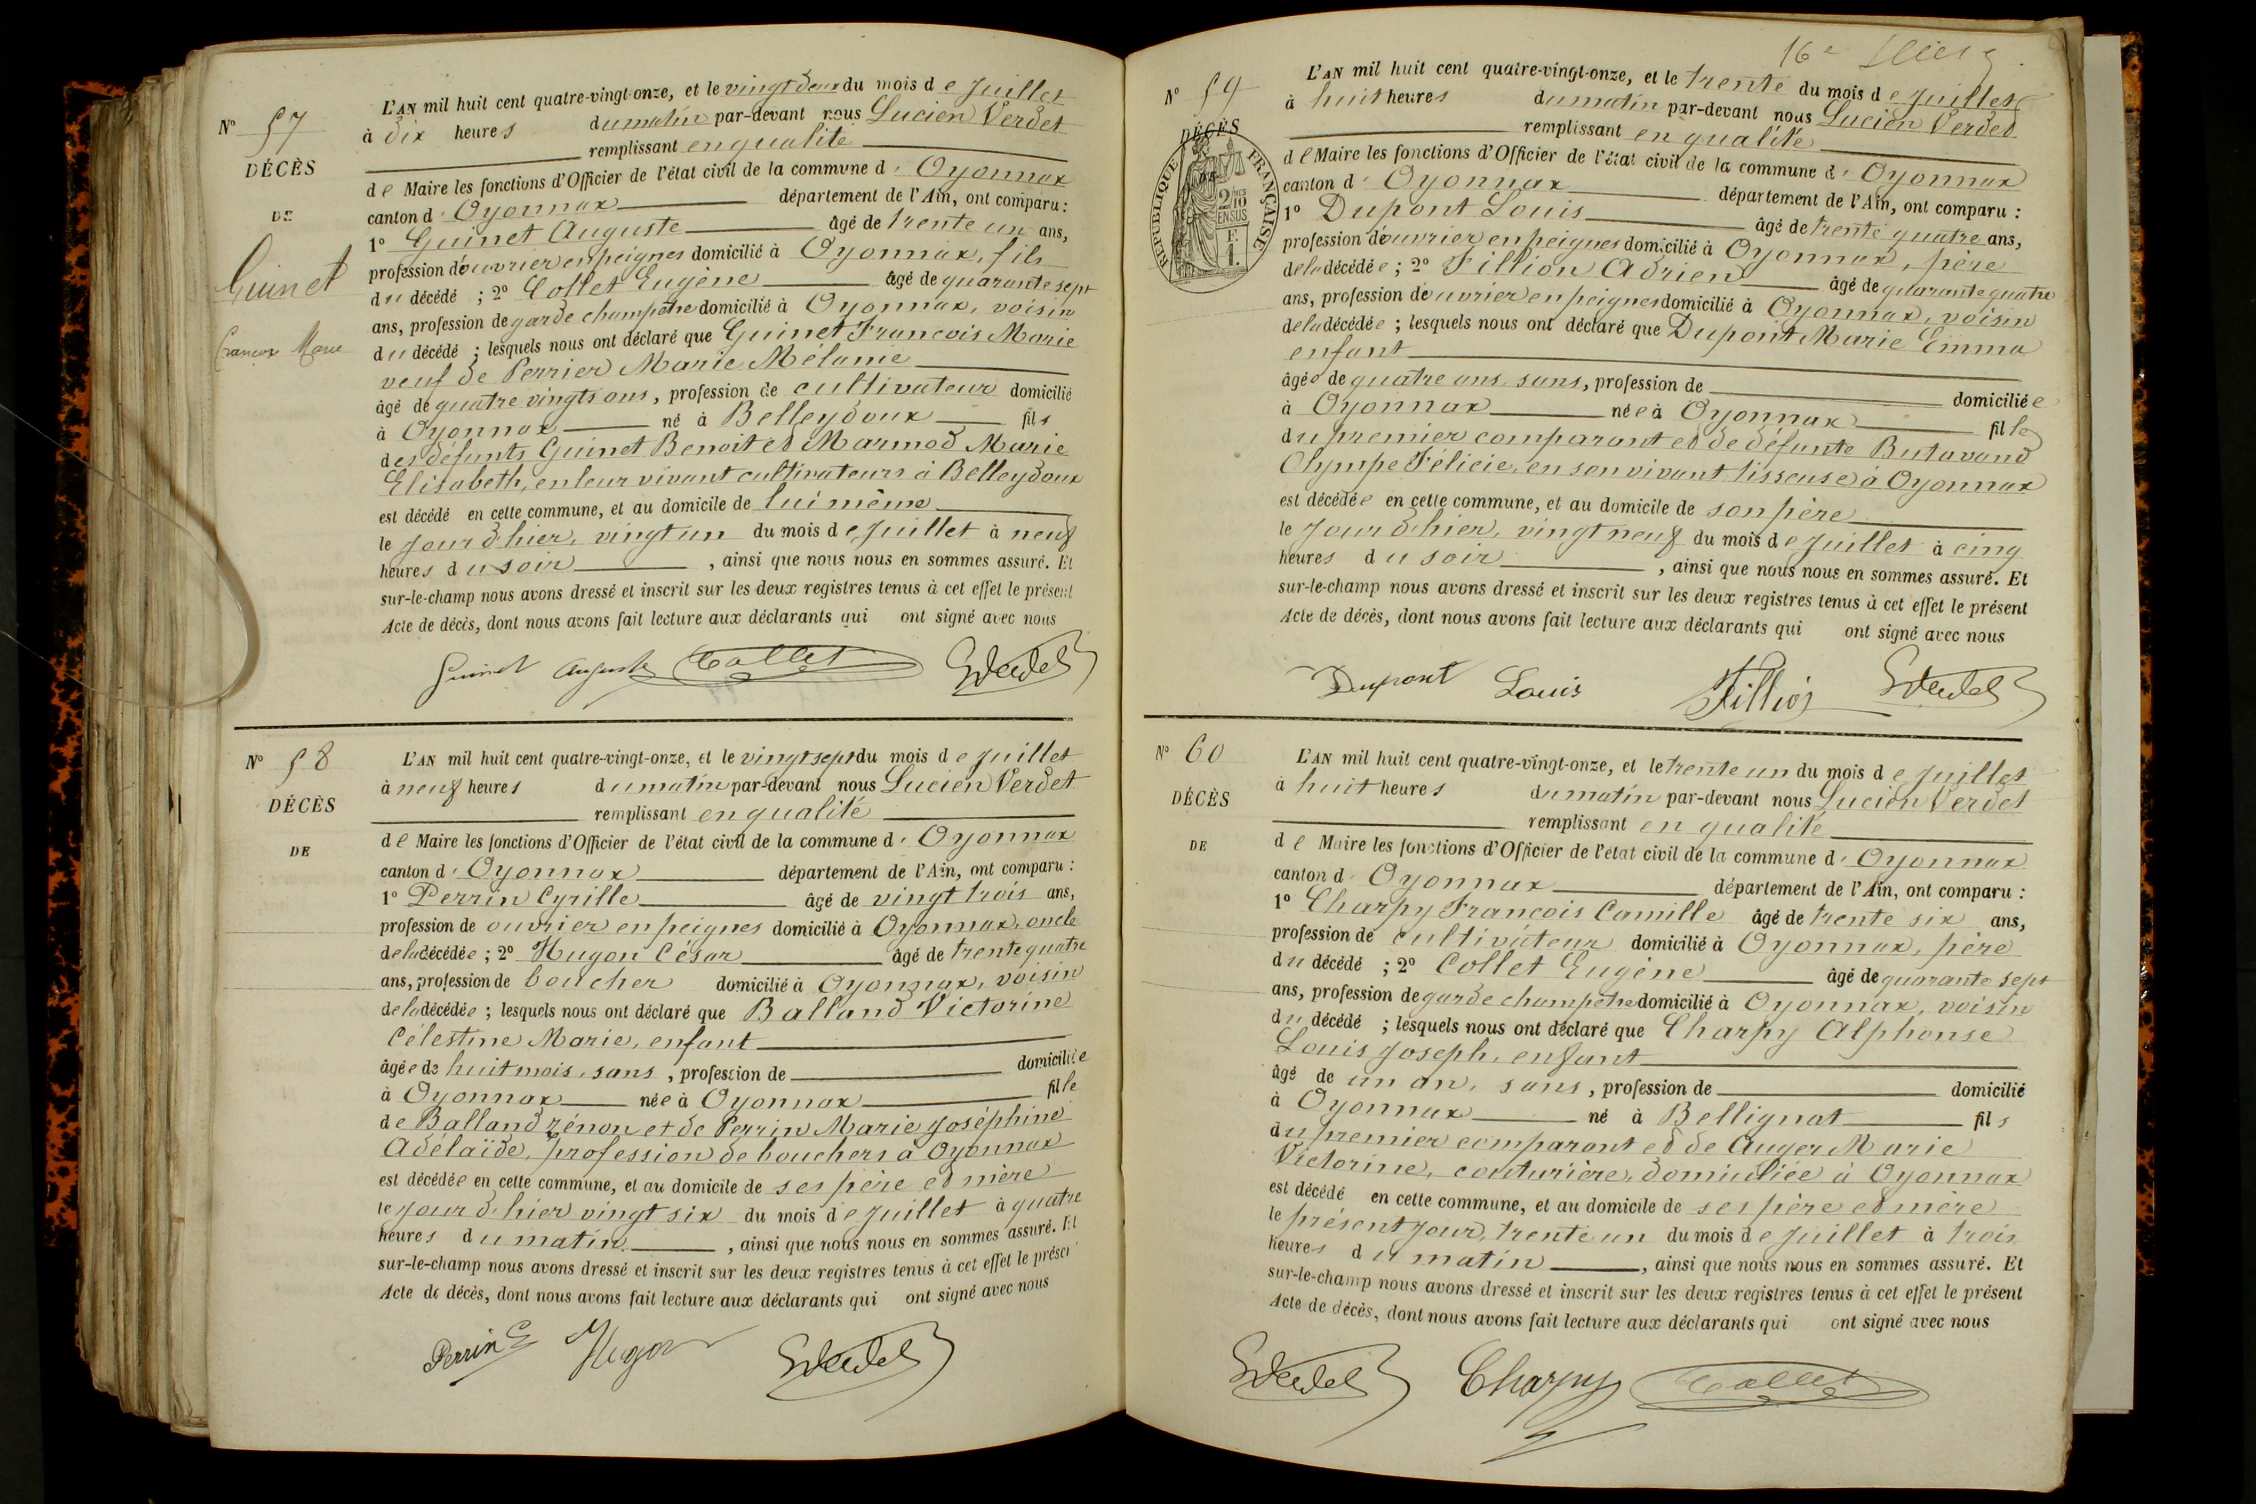 Nº 57
DÉCÈS
DE
Guinet
François Marie
L'AN mil huit cent quatre-vingt-onze, et le vingt deux du mois de Juillet
à dix heures du matin par-devant nous Lucien Verdet
remplissant en qualité
de Maire les fonctions d'Officier de l'état civil de la commune d'Oyonnax
canton d'Oyonnax département de l'Ain, ont comparu :
1º Guinet Auguste âgé de trente un ans,
profession d'ouvrier en peignes domicilié à Oyonnax, fils
du décédé ; 2º Collet Eugène âgé de quarante sept
ans, profession de garde champêtre domicilié à Oyonnax, voisin
du décédé ; lesquels nous ont déclaré que Guinet François Marie
veuf de Perrier Marie Mélanie
âgé de quatre vingts ans, profession de cultivateur domicilié
à Oyonnax né à Belleydoux fils
des défunts Guinet Benoit et Marmod Marie
Elisabeth, en leur vivant cultivateurs à Belleydoux
est décédé en cette commune, et au domicile de lui même
le jour d'hier, vingt un du mois de Juillet à neuf
heures du soir, ainsi que nous nous en sommes assuré. Et
sur-le-champ nous avons dressé et inscrit sur les deux registres tenus à cet effet le présent
Acte de décès, dont nous avons fait lecture aux déclarants qui ont signé avec nous
Guinet Auguste Collet Verdet
Nº 58
DÉCÈS
DE
L'AN mil huit cent quatre-vingt-onze, et le vingt sept du mois de Juillet
à neuf heures du matin par-devant nous Lucien Verdet
remplissant en qualité
de Maire les fonctions d'Officier de l'état civil de la commune d'Oyonnax
canton d'Oyonnax département de l'Ain, ont comparu :
1º Perrin Cyrille âgé de vingt trois ans,
profession de ouvrier en peignes domicilié à Oyonnax, oncle
de la décédée ; 2º Hugon César âgé de trente quatre
ans, profession de boucher domicilié à Oyonnax, voisin
de la décédée ; lesquels nous ont déclaré que Balland Victorine
Célestine Marie, enfant
âgée de huit mois, sans, profession de domiciliée
à Oyonnax née à Oyonnax fille
de Balland Zénon et de Perrin Marie Joséphine
Adélaïde, profession de bouchers à Oyonnax
est décédée en cette commune, et au domicile de ses père et mère
le jour d'hier vingt six du mois de Juillet à quatre
heures du matin, ainsi que nous nous en sommes assuré. Et
sur-le-champ nous avons dressé et inscrit sur les deux registres tenus à cet effet le présen
Acte de décès, dont nous avons fait lecture aux déclarants qui ont signé avec nous
Perrin C Hugon Verdet
16e
Nº 59
DÉCÈS
RÉPUBLIQUE FRANÇAISE
2/10 EN SUS
L'AN mil huit cent quatre-vingt-onze, et le trente du mois de Juillet
à huit heures du matin par-devant nous Lucien Verdet
remplissant en qualité
de Maire les fonctions d'Officier de l'état civil de la commune d'Oyonnax
canton d'Oyonnax département de l'Ain, ont comparu :
1º Dupont Louis âgé de trente quatre ans,
profession d'ouvrier en peignes domicilié à Oyonnax, père
de la décédée ; 2º Fillion Adrien âgé de quarante quatre
ans, profession de ouvrier en peignes domicilié à Oyonnax, voisin
de la décédée ; lesquels nous ont déclaré que Dupont Marie Emma
enfant
âgée de quatre ans sans, profession de domiciliée
à Oyonnax née à Oyonnax fille
du premier comparant et de défunte Butavand
Olympe Félicie, en son vivant tisseuse à Oyonnax
est décédée en cette commune, et au domicile de son père
le jour d'hier, vingt neuf du mois de Juillet à cinq
heures du soir, ainsi que nous nous en sommes assuré. Et
sur-le-champ nous avons dressé et inscrit sur les deux registres tenus à cet effet le présent
Acte de décès, dont nous avons fait lecture aux déclarants qui ont signé avec nous
Dupont Louis Fillion Verdet
Nº 60
DÉCÈS
DE
L'AN mil huit cent quatre-vingt-onze, et le trente un du mois de Juillet
à huit heures du matin par-devant nous Lucien Verdet
remplissant en qualité
de Maire les fonctions d'Officier de l'état civil de la commune d'Oyonnax
canton d'Oyonnax département de l'Ain, ont comparu :
1º Charpy François Camille âgé de trente six ans,
profession de cultivateur domicilié à Oyonnax, père
du décédé ; 2º Collet Eugène âgé de quarante sept
ans, profession de garde champêtre domicilié à Oyonnax, voisin
du décédé ; lesquels nous ont déclaré que Charpy Alphonse
Louis Joseph, enfant
âgé de un an, sans, profession de domicilié
à Oyonnax né à Bellignat fils
du premier comparant et de Auger Marie
Victorine, couturière, domiciliée à Oyonnax
est décédé en cette commune, et au domicile de ses père et mère
le présent jour, trente un du mois de Juillet à trois
heures du matin, ainsi que nous nous en sommes assuré. Et
sur-le-champ nous avons dressé et inscrit sur les deux registres tenus à cet effet le présent
Acte de décès, dont nous avons fait lecture aux déclarants qui ont signé avec nous
Verdet Charpy Collet